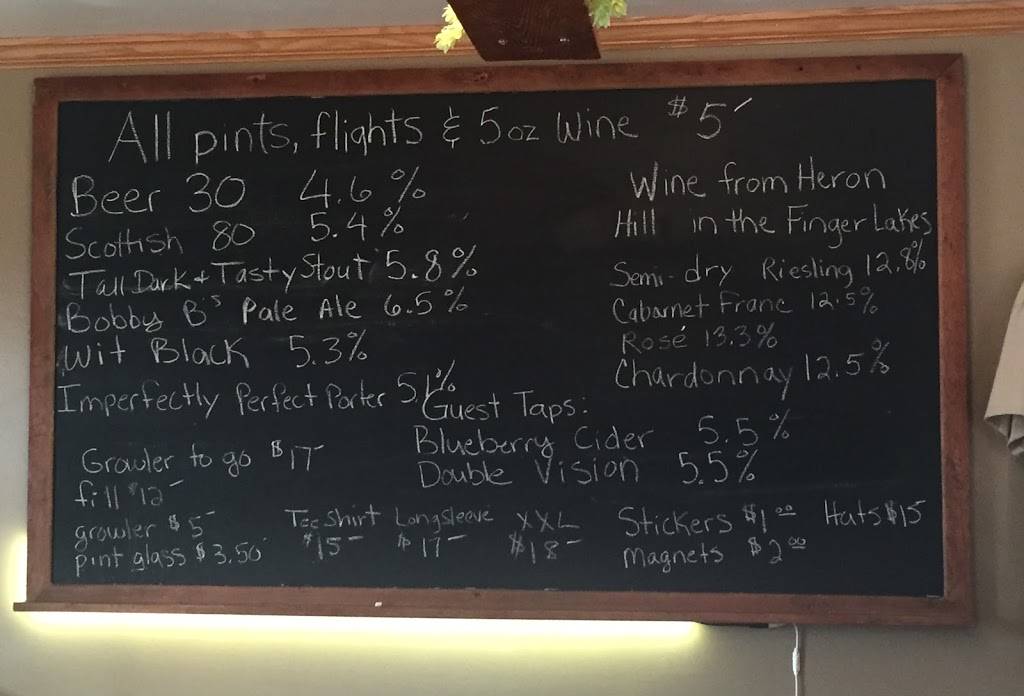 All pints, flights & 5oz Wine $5
Beer 30 4.6%
Scottish 80 5.4%
Tall Dark + Tasty Stout 5.8%
Bobby B's Pale Ale 6.5%
Wit Black 5.3%
Imperfectly Perfect Porter 5.1%
Wine from Heron
Hill in the Finger Lakes
Semi-dry Riesling 12.8%
Cabarnet Franc 12.5%
Rosé 13.3%
Chardonnay 12.5%
Guest Taps:
Blueberry Cider 5.5%
Double Vision 5.5%
Growler to go $17
fill $12
growler $5
pint glass $3.50
Tee Shirt Longsleeve XXL
$15 $17 $18
Stickers $1.00 Hats $15
Magnets $2.00